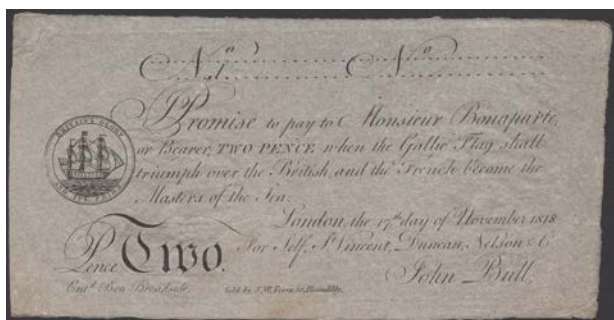 No No
I Promise to pay to Monsieur Bonaparte,
or Bearer, TWO PENCE when the Gallic Flag shall
triumph over the British, and the French become the
Masters of the Sea.
BRITAIN'S GLORY
London, the 17th day of November 1818
For Self, St. Vincent, Duncan, Nelson & Co
Pence Two.
John Bull
Entd. Ben Broadside.
Sold by